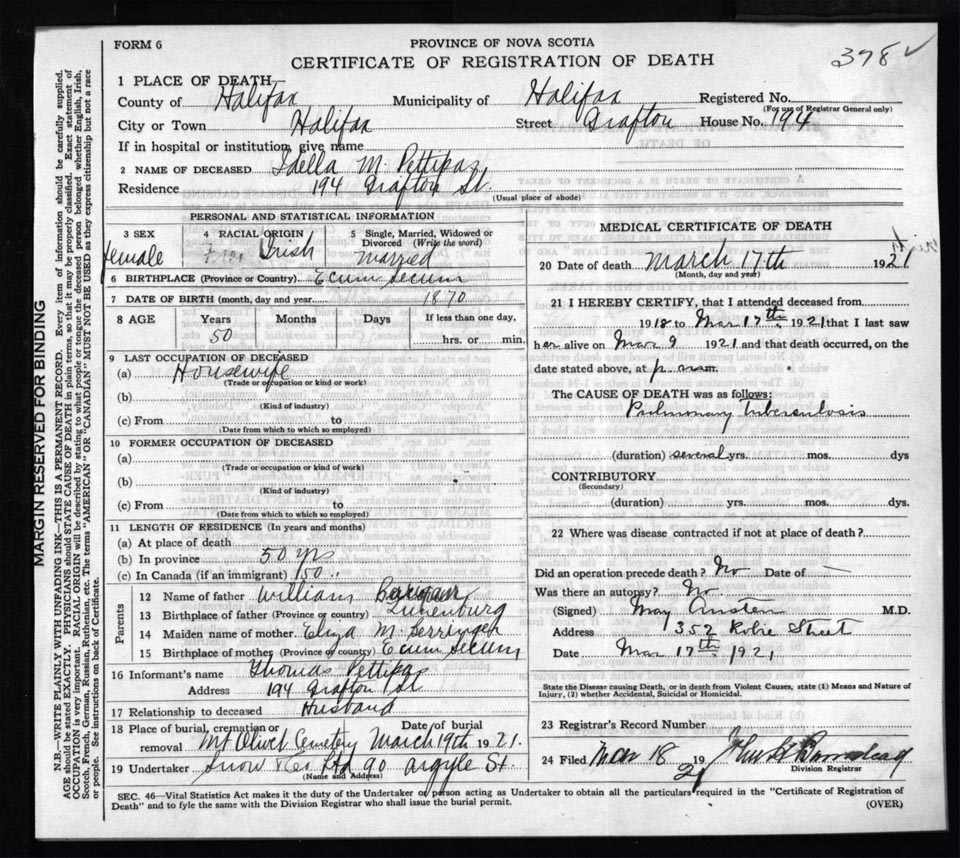 FORM 6
PROVINCE OF NOVA SCOTIA
CERTIFICATE OF REGISTRATION OF DEATH
398 ✓
1 PLACE OF DEATH—
County of Halifax Municipality of Halifax Registered No.
(For use of Registrar General only)
City or Town Halifax Street Grafton House No. 194
If in hospital or institution, give name
2 NAME OF DECEASED Idella M. Pettipas
Residence 194 Grafton St.
(Usual place of abode)
PERSONAL AND STATISTICAL INFORMATION
3 SEX
female
4 RACIAL ORIGIN
Irish
5 Single, Married, Widowed or Divorced (Write the word)
married
6 BIRTHPLACE (Province or Country) Ecum Secum
7 DATE OF BIRTH (month, day and year 1870
8 AGE Years Months Days If less than one day,
50 hrs. or min.
9 LAST OCCUPATION OF DECEASED
(a) Housewife
(Trade or occupation or kind or work)
(b)
(Kind of industry)
(c) From to
(Date from which to which so employed)
10 FORMER OCCUPATION OF DECEASED
(a)
(Trade or occupation or kind of work)
(b)
(Kind of industry)
(c) From to
(Date from which to which so employed)
11 LENGTH OF RESIDENCE (In years and months)
(a) At place of death
(b) In province 50 yrs
(c) In Canada (if an immigrant) 50 "
Parents
12 Name of father William
13 Birthplace of father (Province or country) Lunenburg
14 Maiden name of mother Eliza M.
15 Birthplace of mother (Province or Country) Ecum Secum
16 Informant's name Thomas Pettipas
Address 194 Grafton St
17 Relationship to deceased Husband
18 Place of burial, cremation or removal Mt Olivet Cemetery Date of burial March 19th 1921.
19 Undertaker Snow & Co Ltd 90 Argyle St.
(Name and Address)
MEDICAL CERTIFICATE OF DEATH
20 Date of death March 17th 1921
(Month, day and year)
21 I HEREBY CERTIFY, that I attended deceased from
1918 to Mar 17th, 1921 that I last saw
her alive on Mar 9 1921 and that death occurred, on the
date stated above, at p. m.
The CAUSE OF DEATH was as follows:
Pulmonary tuberculosis
(duration) several yrs. mos. dys
CONTRIBUTORY
(Secondary)
(duration) yrs. mos. dys.
22 Where was disease contracted if not at place of death?
Did an operation precede death? No Date of —
Was there an autopsy? No
(Signed) M.D.
Address Robie Street
Date Mar 17th 1921
State the Disease causing Death, or in death from Violent Causes, state (1) Means and Nature of Injury, (2) whether Accidental, Suicidal or Homicidal.
23 Registrar's Record Number
24 Filed Mar 18 1921
Division Registrar
SEC. 46—Vital Statistics Act makes it the duty of the Undertaker or person acting as Undertaker to obtain all the particulars required in the "Certificate of Registration of
Death" and to fyle the same with the Division Registrar who shall issue the burial permit.
(OVER)
MARGIN RESERVED FOR BINDING
N.B.—WRITE PLAINLY WITH UNFADING INK—THIS IS A PERMANENT RECORD. Every item of information should be carefully supplied.
AGE should be stated EXACTLY. PHYSICIANS should STATE CAUSE OF DEATH in plain terms, so that it may be properly classified. Exact statement of
OCCUPATION is very important. RACIAL ORIGIN will be described by stating to what people or tongue the deceased person belonged whether English, Irish,
Scotch, French, German, Russian, Ruthenian, etc. The terms "AMERICAN" OR "CANADIAN" MUST NOT BE USED as they express citizenship but not a race
or people. See instructions on back of Certificate.